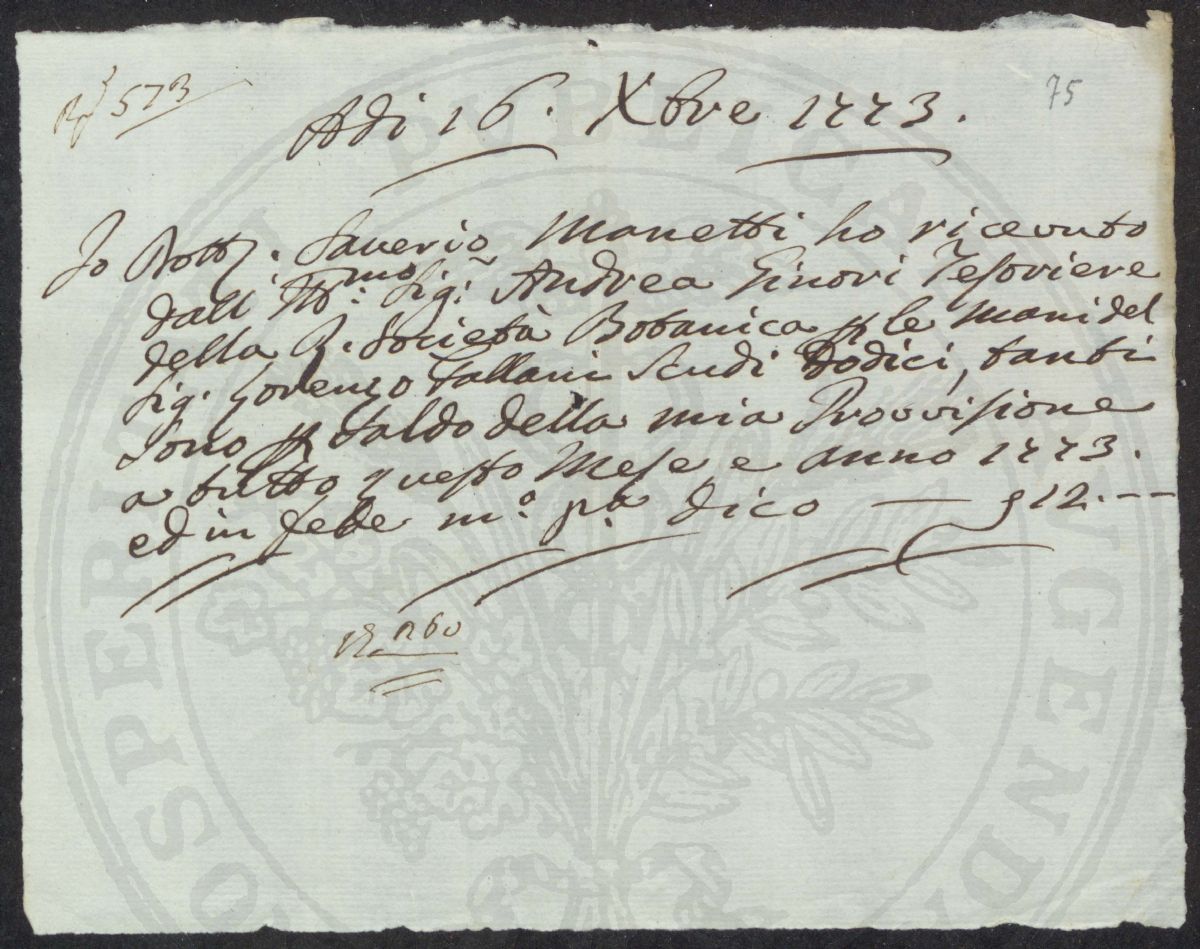 573
75
Adi 16. Xbre 1773.
Io Dott.r Saverio Manetti ho ricevuto
dall' Ill.mo Sig.r Andrea Ginori Tesoriere
della R. Società Botanica p le mani del
Sig. Lorenzo Tallani Scudi Dodici, tanti
sono p saldo della mia Provvisione
a tutto questo Mese e anno 1773.
ed in fede m.o p.a dico — 12. – –